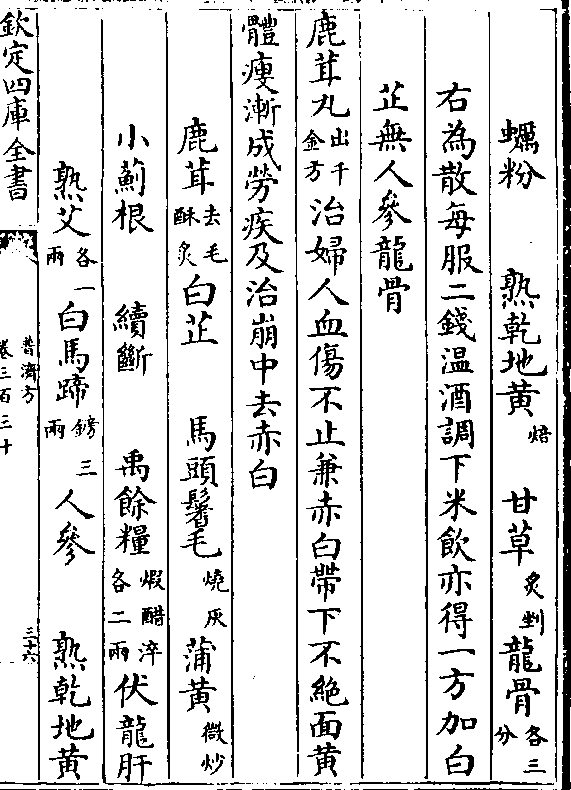 蠣粉 熟乾地黄焙 甘草炙剉 龍骨各三分
右為散每服二錢温酒調下米飲亦得一方加白
芷無人參龍骨
鹿茸丸出千金方治婦人血傷不止兼赤白帶下不絶面黄
體瘦漸成勞疾及治崩中去赤白
鹿茸去毛酥炙 白芷 馬頭鬐毛燒灰 蒲黄微炒
小薊根 續斷 禹餘糧煆醋淬各二兩 伏龍肝
熟艾各一兩 白馬蹄鎊三兩 人參 熟乾地黄
欽定四庫全書
普濟方
卷三百三十
三十六